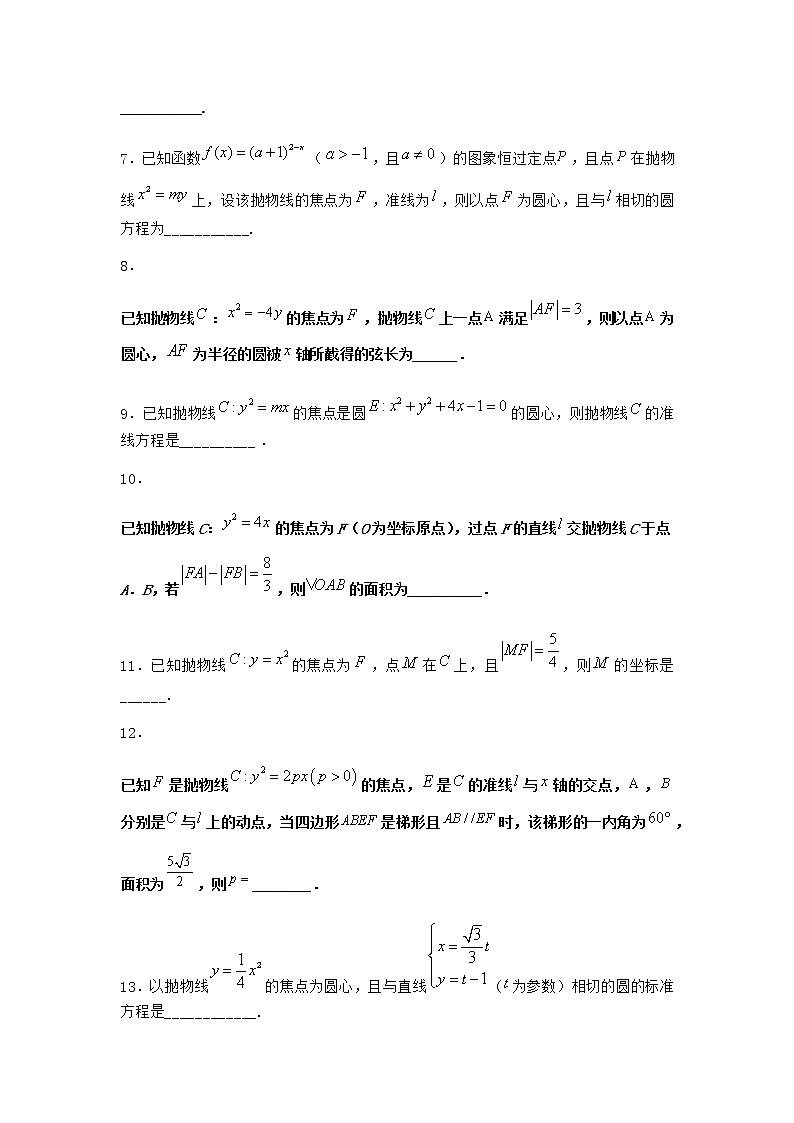 ___________.
7.已知函数f(x)=(a+1)^{2-x}(a>-1,且a≠0)的图象恒过定点P,且点P在抛物
线x²=my上,设该抛物线的焦点为F,准线为l,则以点F为圆心,且与l相切的圆
方程为___________.
8.
已知抛物线C:x²=-4y的焦点为F,抛物线C上一点A满足|AF|=3,则以点A为
圆心,AF为半径的圆被x轴所截得的弦长为______.
9.已知抛物线C:y²=mx的焦点是圆E:x²+y²+4x-1=0的圆心,则抛物线C的准
线方程是__________.
10.
已知抛物线C:y²=4x的焦点为F(O为坐标原点),过点F的直线l交抛物线C于点
A.B,若|FA|-|FB|=8/3,则▽OAB的面积为__________.
11.已知抛物线C:y=x²的焦点为F,点M在C上,且|MF|=5/4,则M的坐标是
______.
12.
已知F是抛物线C:y²=2px(p>0)的焦点,E是C的准线l与x轴的交点,A,B
分别是C与l上的动点,当四边形ABEF是梯形且AB//EF时,该梯形的一内角为60°,
面积为5√3/2,则p=________.
13.以抛物线y=1/4x²的焦点为圆心,且与直线{x=√3/3t y=t-1(t为参数)相切的圆的标准
方程是____________.